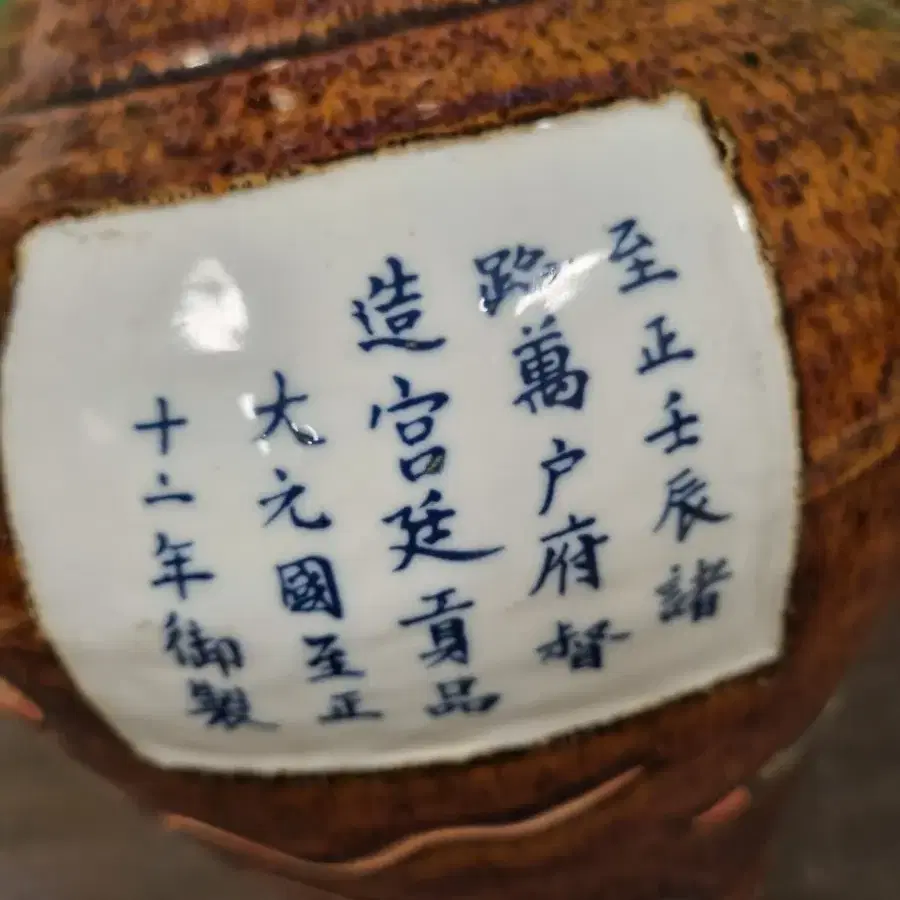 至正壬辰諸
路萬户府督
造宫廷貢品
大元國至正
十二年御製